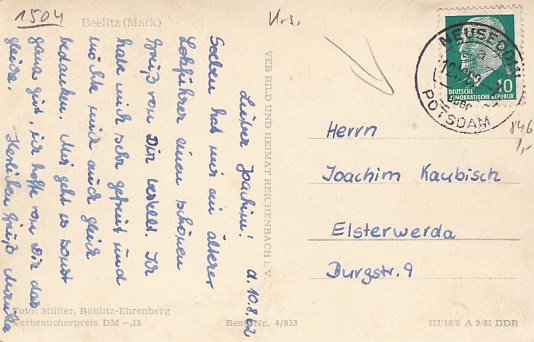 1504
Beelitz (Mark)
Urs.
Lieber Joachim! d. 10.8.62
Soeben hat mir ein älterer
Lokführer einen schönen
Gruß von Dir bestellt. Ich
habe mich sehr gefreut und
möchte mich auch gleich
bedanken. Mir geht es sonst
ganz gut, ich hoffe von Dir das
gleiche. Herzlichen Gruß Monika
VEB BILD UND HEIMAT REICHENBACH i. V.
NEUSEDDIN
über
POTSDAM
10
DEUTSCHE
DEMOKRATISCHE REPUBLIK
846
1,-
Herrn
Joachim Kaubisch
Elsterwerda
Burgstr. 9
Foto: Müller, Böhlitz-Ehrenberg
Verbraucherpreis DM -,15
Best.-Nr. 4/833
III/18/6 A 3/61 DDR